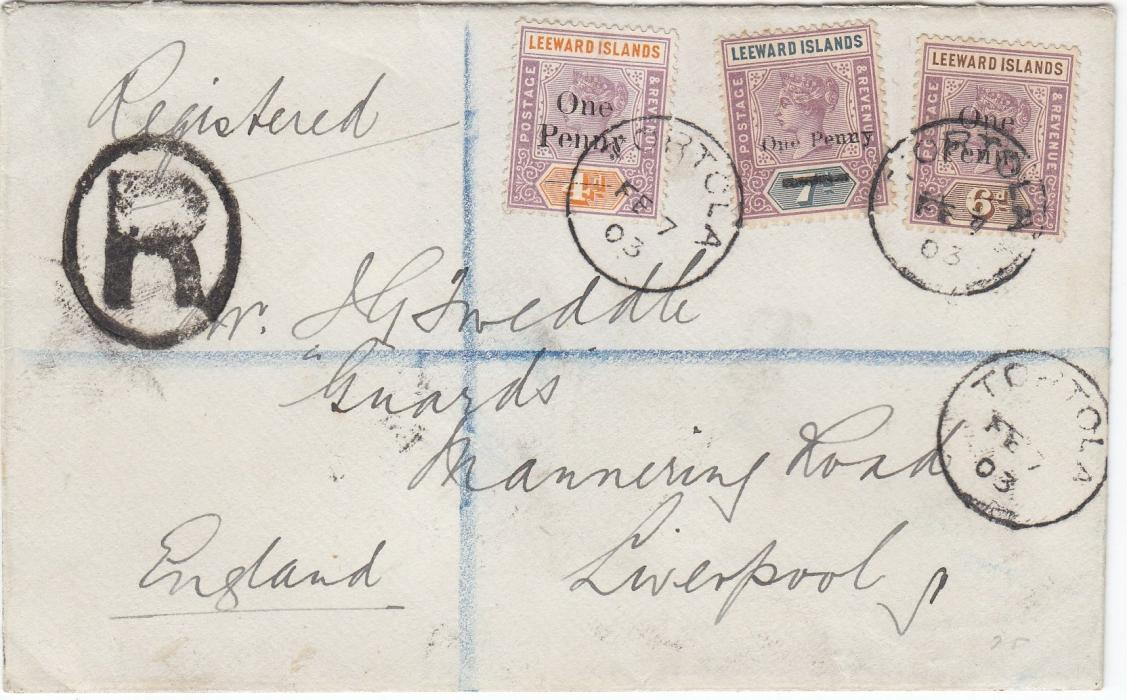 Registered
R
LEEWARD ISLANDS
POSTAGE & REVENUE
One
Penny
4D
LEEWARD ISLANDS
POSTAGE & REVENUE
One Penny
7D
LEEWARD ISLANDS
POSTAGE & REVENUE
One
Penny
6D
TORTOLA
FE 7
03
TORTOLA
FE 7
03
Mr. J G Tweddle
Guards
Mannering Road
Liverpool
England
TORTOLA
FE 7
03
25